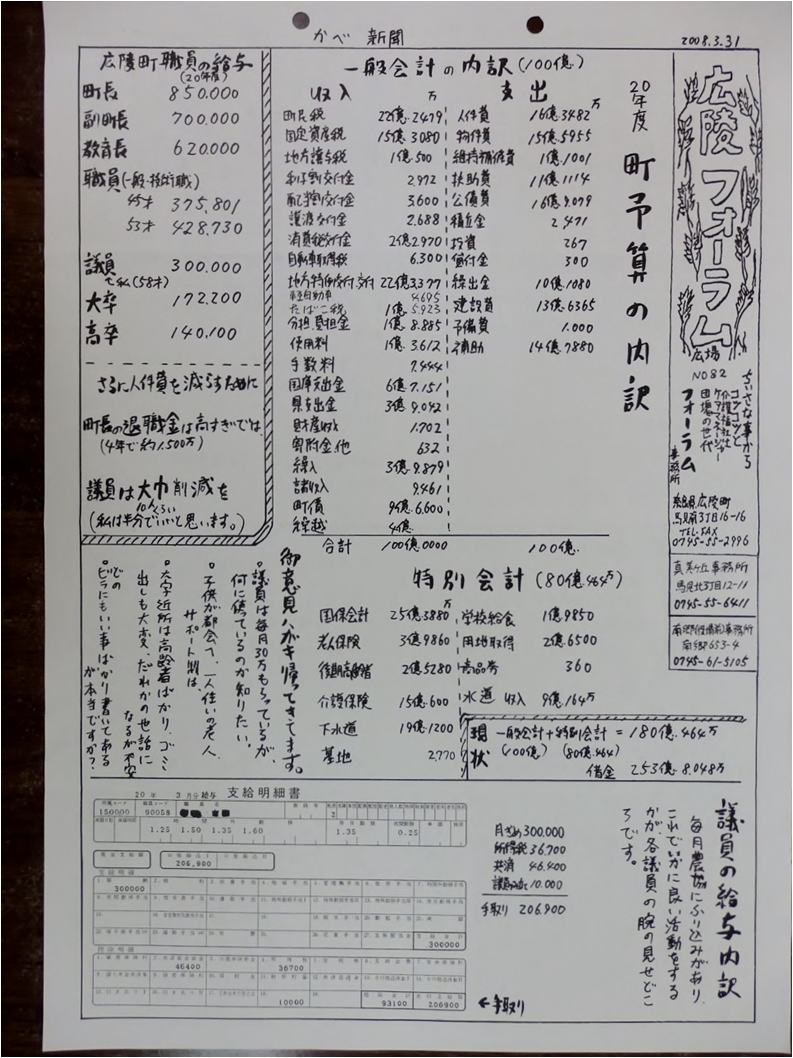 かべ 新聞
2008.3.31
広陵フォーラム
広場
NO82
ちいさな事から
コツコツと
介護福祉士
ケアマネージャー
団塊の世代
フォーラム
事務所
奈良県広陵町
馬見南3丁目16-16
TEL・FAX
0745-55-2996
真美ヶ丘事務所
馬見北3丁目12-11
0745-55-6411
南郷役場前事務所
南郷653-4
0745-61-5105
20年度 町予算の内訳
一般会計の内訳(100億)
収入 万
町民税 22億.2479
固定資産税 15億.3080
地方譲与税 1億.500
利子割交付金 2.972
配当割交付金 3.600
譲渡交付金 2.688
消費税交付金 2億2970
自動車取得税 6.300
地方特例交付.交付 22億3.377
軽自動車 4.695
たばこ税 1億5.923
分担.負担金 1億8.885
使用料 1億3.612
手数料 7.444
国庫支出金 6億7.151
県支出金 3億9.042
財産収入 1.702
寄附金他 632
繰入 3億9.879
諸収入 9.461
町債 9億6.600
繰越 4億
合計 100億.0000
支出 万
人件費 16億.3482
物件費 15億.5955
維持補修費 1億.1001
扶助費 11億1114
公債費 16億9.079
積立金 2.471
投資 267
貸付金 300
繰出金 10億.1080
建設費 13億.6365
予備費 1.000
補助 14億.7880
100億.
広陵町職員の給与
(20年度)
町長 850.000
副町長 700.000
教育長 620.000
職員(一般・技術職)
45才 375,801
53才 428.730
議員 300.000
で私(58才)
大卒 172.200
高卒 140.100
さらに人件費を減らすために
町長の退職金は高すぎでは、
(4年で約1.500万)
議員は大巾削減を
10人くらい
(私は半分でいいと思います。)
特別会計(80億.464万)
国保会計 25億.3880万
老人保険 3億9860
後期高齢者 2億5280
介護保険 15億.600
下水道 19億.1200
墓地 2,770
学校給食 1億.9850
用地取得 2億.6500
商品券 360
水道 収入 9億.164万
現状
一般会計+特別会計 = 180億.464万
(100億) (80億.464)
借金 253億.8.048万
御意見ハガキ帰ってきてます。
・議員は毎月30万もらっているが、
何に使っているのか知りたい。
・子供が都会で、一人住いの老人
サポート制は、
・大字近所は高齢者ばかり、ゴミ
出しも大変、だれかの世話に
なるが不安
・どの
ビラにもいい事ばかり書いてある
が本当ですか?
議員の給与内訳
毎月農協にふり込みがあり、
これでいかに良い活動をする
かが、各議員の腕の見せどこ
ろです。
月ぎめ300.000
所得税36,700
共済 46.400
10.000
手取り 206.900
20 年 3 月分給与 支給明細書
150000 90058
1.25 1.50 1.35 1.60 1.35 0.25
206,900
支給明細
300000
300000
控除明細
46400 36700
10000 93100 206900
←手取り